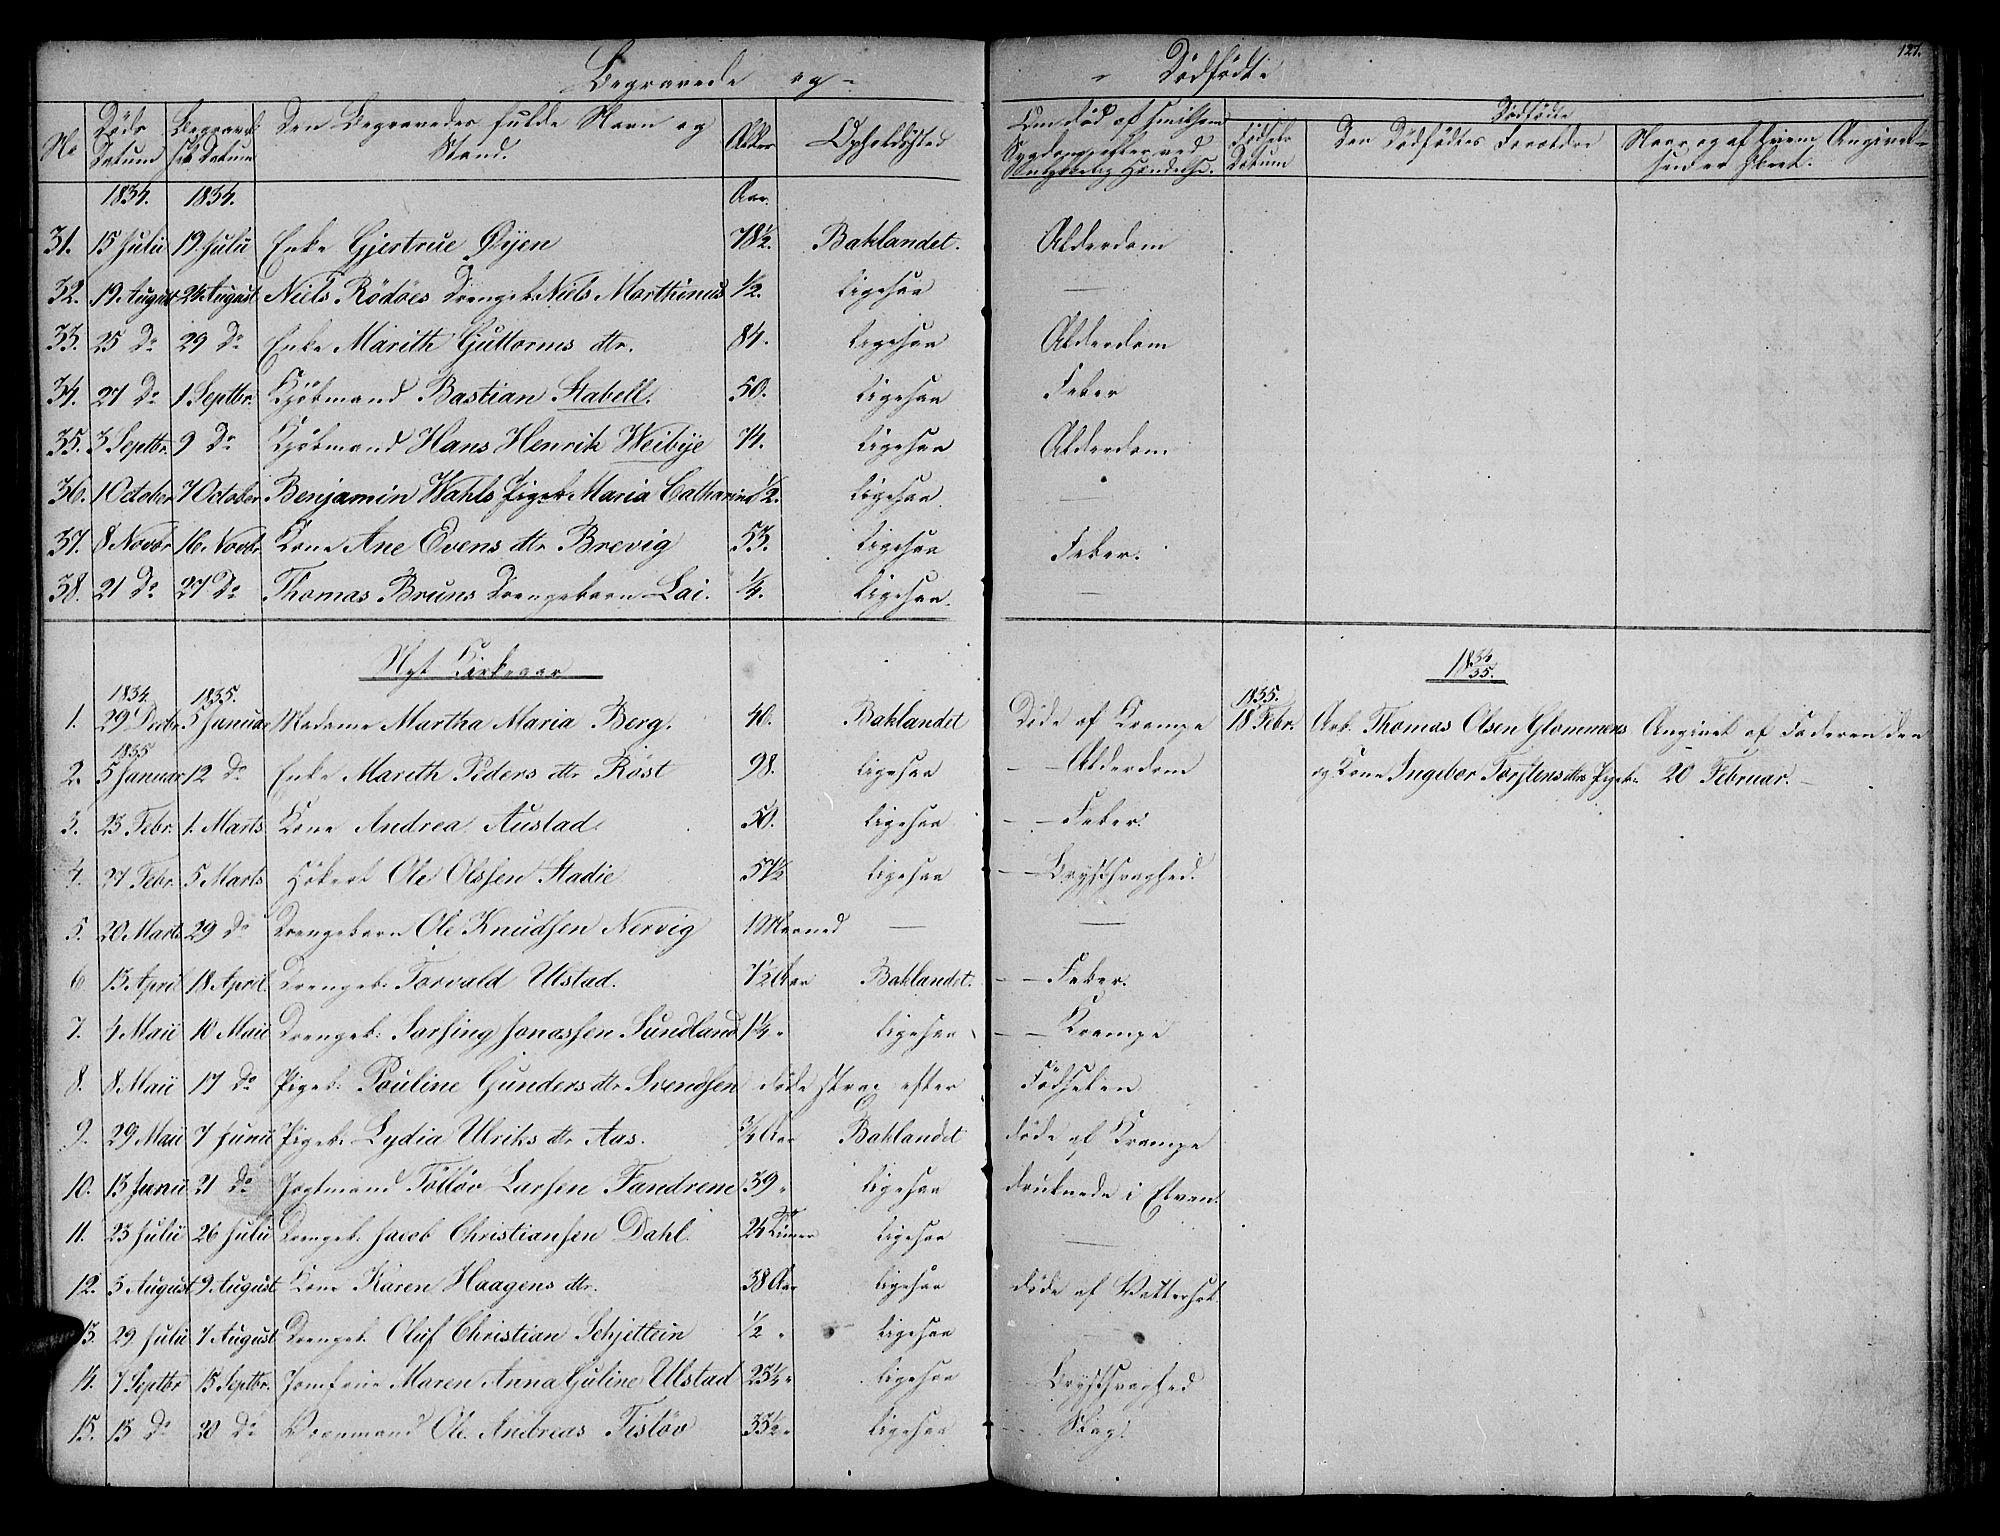 127.
Begravede og - - Dödfödte
No | Döds Datum | Begravel- ses Datum | Den Begravedes fulde Navn og Stand. | Alder | Opholdssted | Om död af Sygdom eller ved Hændelse. | Dödfödte
Födsels Datum | Den Dödfödtes Forældre | Naar og af hvem Angivelsen er skeet.
1834. | 1834. | Aar.
31. | 15 Julii | 19 Julii | Enke Gjertrue Öyen | 78½. | Baklandet. | Alderdom
32. | 19 August | 24 August | Niels Rödöes Drengeb. Niels Marthinus | ½. | ligesaa | —
33. | 25 Do | 29 Do | Enke Marith Guttorms dtr. | 84. | ligesaa | Alderdom
34. | 27 Do | 1 Septbr. | Kjöbmand Bastian Stabell. | 50. | ligesaa | Feber
35. | 3 Septbr. | 9 Do | Kjöbmand Hans Henrik Weibye | 74. | ligesaa | Alderdom
36. | 1 October | 7 October | Benjamin Wahls Pigeb. Maria Catharina | ½. | ligesaa | —
37. | 8 Novbr | 16 Novbr. | Kone Ane Evens dtr Brevig | 53. | ligesaa | Feber.
38. | 21 Do | 27 Do | Thomas Bruns Drengebarn Lai. | ¼. | ligesaa. | —
Nyt Kirkeaar | 1834/35.
1834. | 1835. | 1835.
1. | 29 Decbr. | 5 Januar | Madame Martha Maria Berg. | 40. | Baklandet | Döde af Krampe | 18 Febr. | Arb. Thomas Olsen Glommens | Angivet af Faderen den
1835
2. | 5 Januar | 12 Do | Enke Mareth Peders dtr Röst | 98. | ligesaa | — Alderdom | og Kone Ingeber Torstens dtr Pigeb. | 20 Februar. —
3. | 23 Febr. | 1. Marts | Kone Andrea Austad. | 50. | ligesaa | — Feber.
4. | 27 Febr. | 5 Marts | Höker Ole Olssen Stadie | 57½ | ligesaa | — Brystsvaghed.
5. | 20 Marts | 29 Do | Drengebarn Ole Knudssen Nervig | 1 Maaned | — | —
6. | 13 April | 18 April. | Drengeb. Torvald Ulstad. | 7½ Aar | Baklandet. | — Feber.
7. | 4 Maii | 10 Maii | Drengeb. Sarsing Jonassen Sundland | 1¼ " | ligesaa | — Krampe
8. | 8 Maii | 17 Do | Pigeb. Pauline Gunders dtr Svendsen | döde strax efter | Födselen
9. | 29 Maii | 7 Junii | Pigeb. Lydia Ulriks dtr Aas. | ¾ Aar | Baklandet | döde af Krampe
10. | 13 Junii | 21 Do | Jagtmand Tölløv Larsen Fandrem | 39 " | ligesaa | druknede i Elven.
11. | 23 Julii | 26 Julii | Drengeb. Jacob Christiansen Dahl. | 24 Timer | ligesaa | —
12. | 3 August | 9 August | Kone Karen Haagens dtr. | 38 Aar | ligesaa | döde af Vattersot.
13. | 29 Julii | 7 August. | Drengeb. Oluf Christian Schjetlein | ½ " | ligesaa
14. | 7 Septbr | 13 Septbr. | Jomfrue Maren Anna Guline Ulstad | 25¼ " | ligesaa | Brystsvaghed
15. | 13 Do | 20 Do | Ole Andreas Fislöv | 33½ " | ligesaa | Slag.